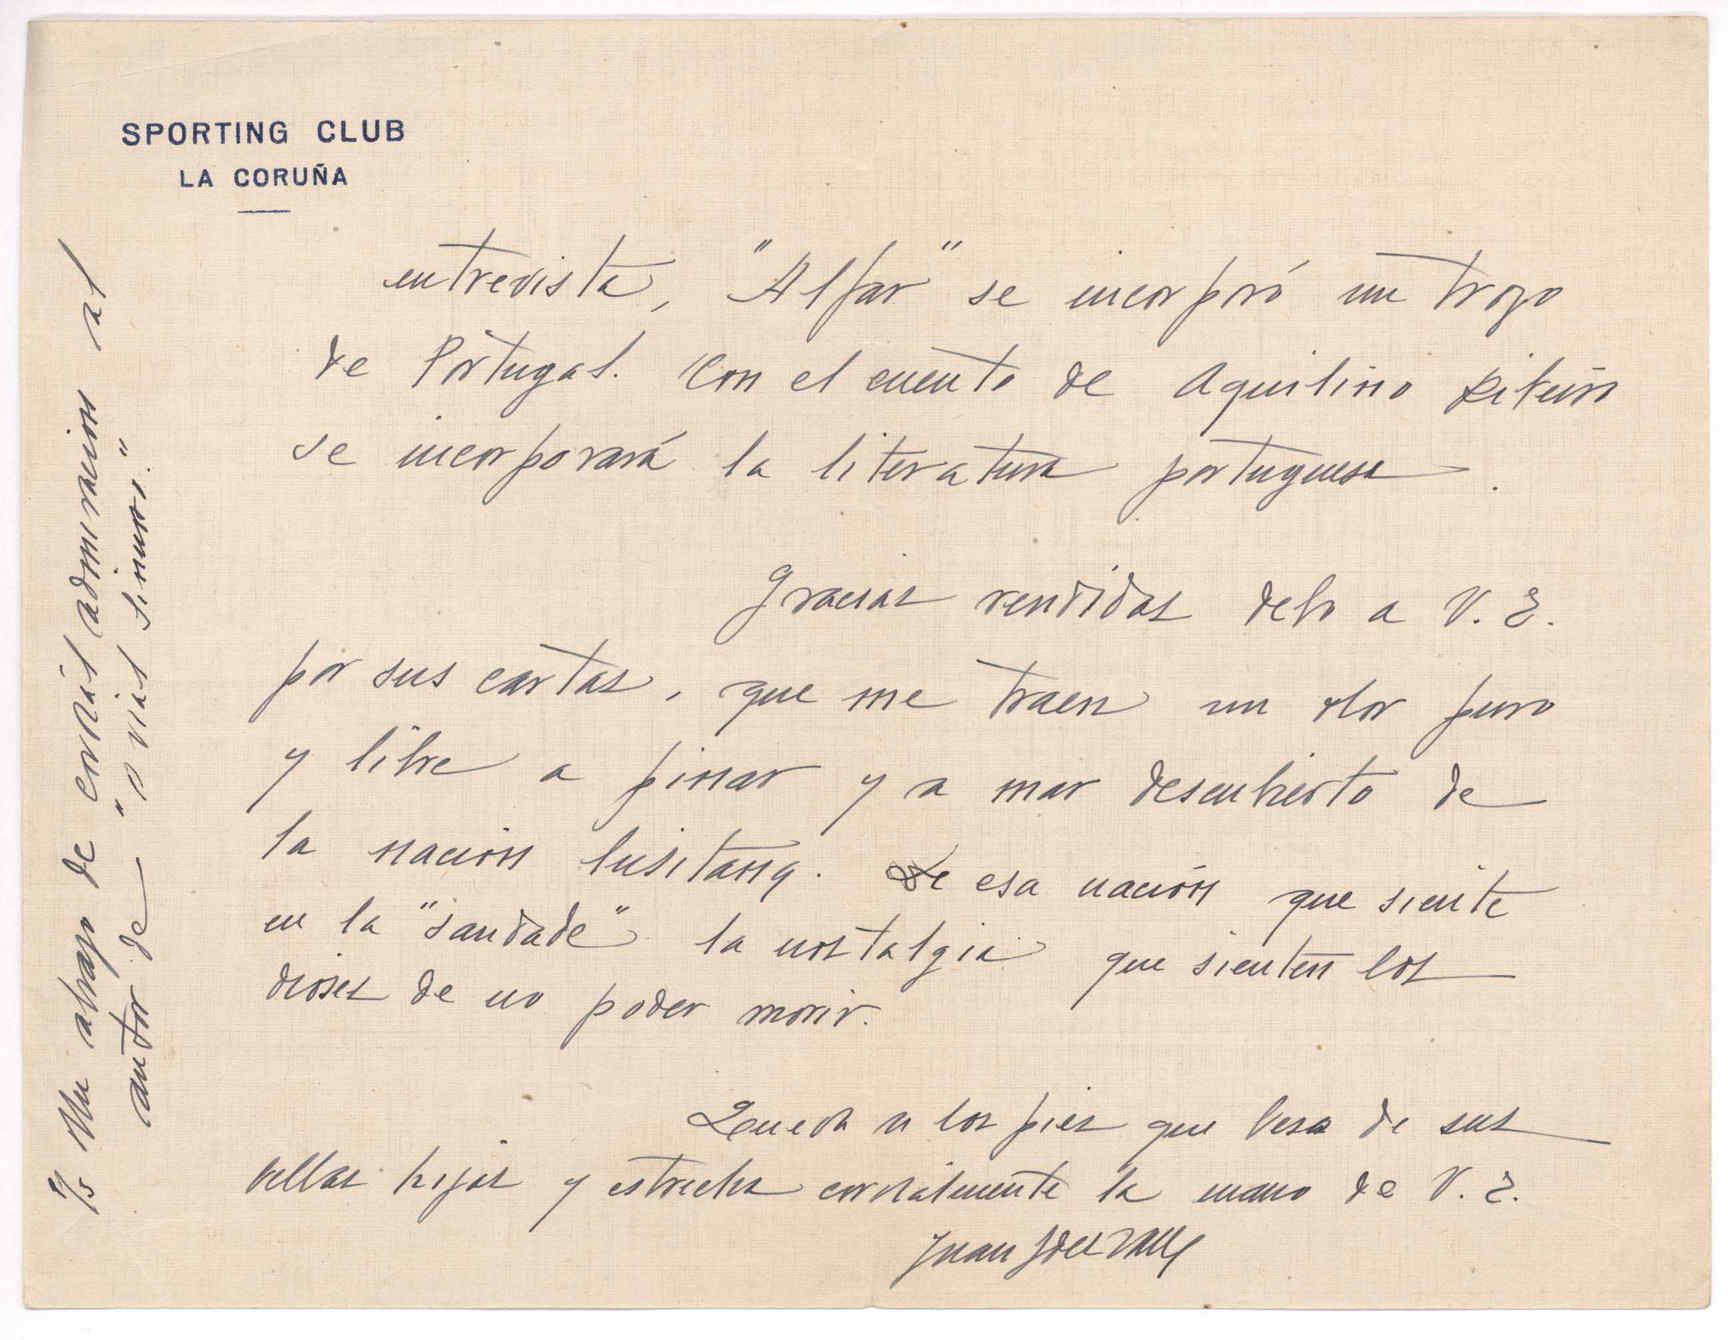 SPORTING CLUB
LA CORUÑA
entrevista, "Alfar" se incorporó un trozo
de Portugal. Con el cuento de Aquilino
se incorporará la literatura portuguesa.
Gracias rendidas debo a V. E.
por sus cartas, que me traen un olor puro
y libre a pinar y a mar descubierto de
la nación lusitana. De esa nación que siente
en la "saudade" la nostalgia que sienten los
dioses de no poder morir.
Queda a los pies que besa de sus
bellas hijas y estrecha cordialmente la mano de V. E.
Juan J del Valle
P/s Un abrazo de cordial admiración al
autor de "O vial sinuoso."